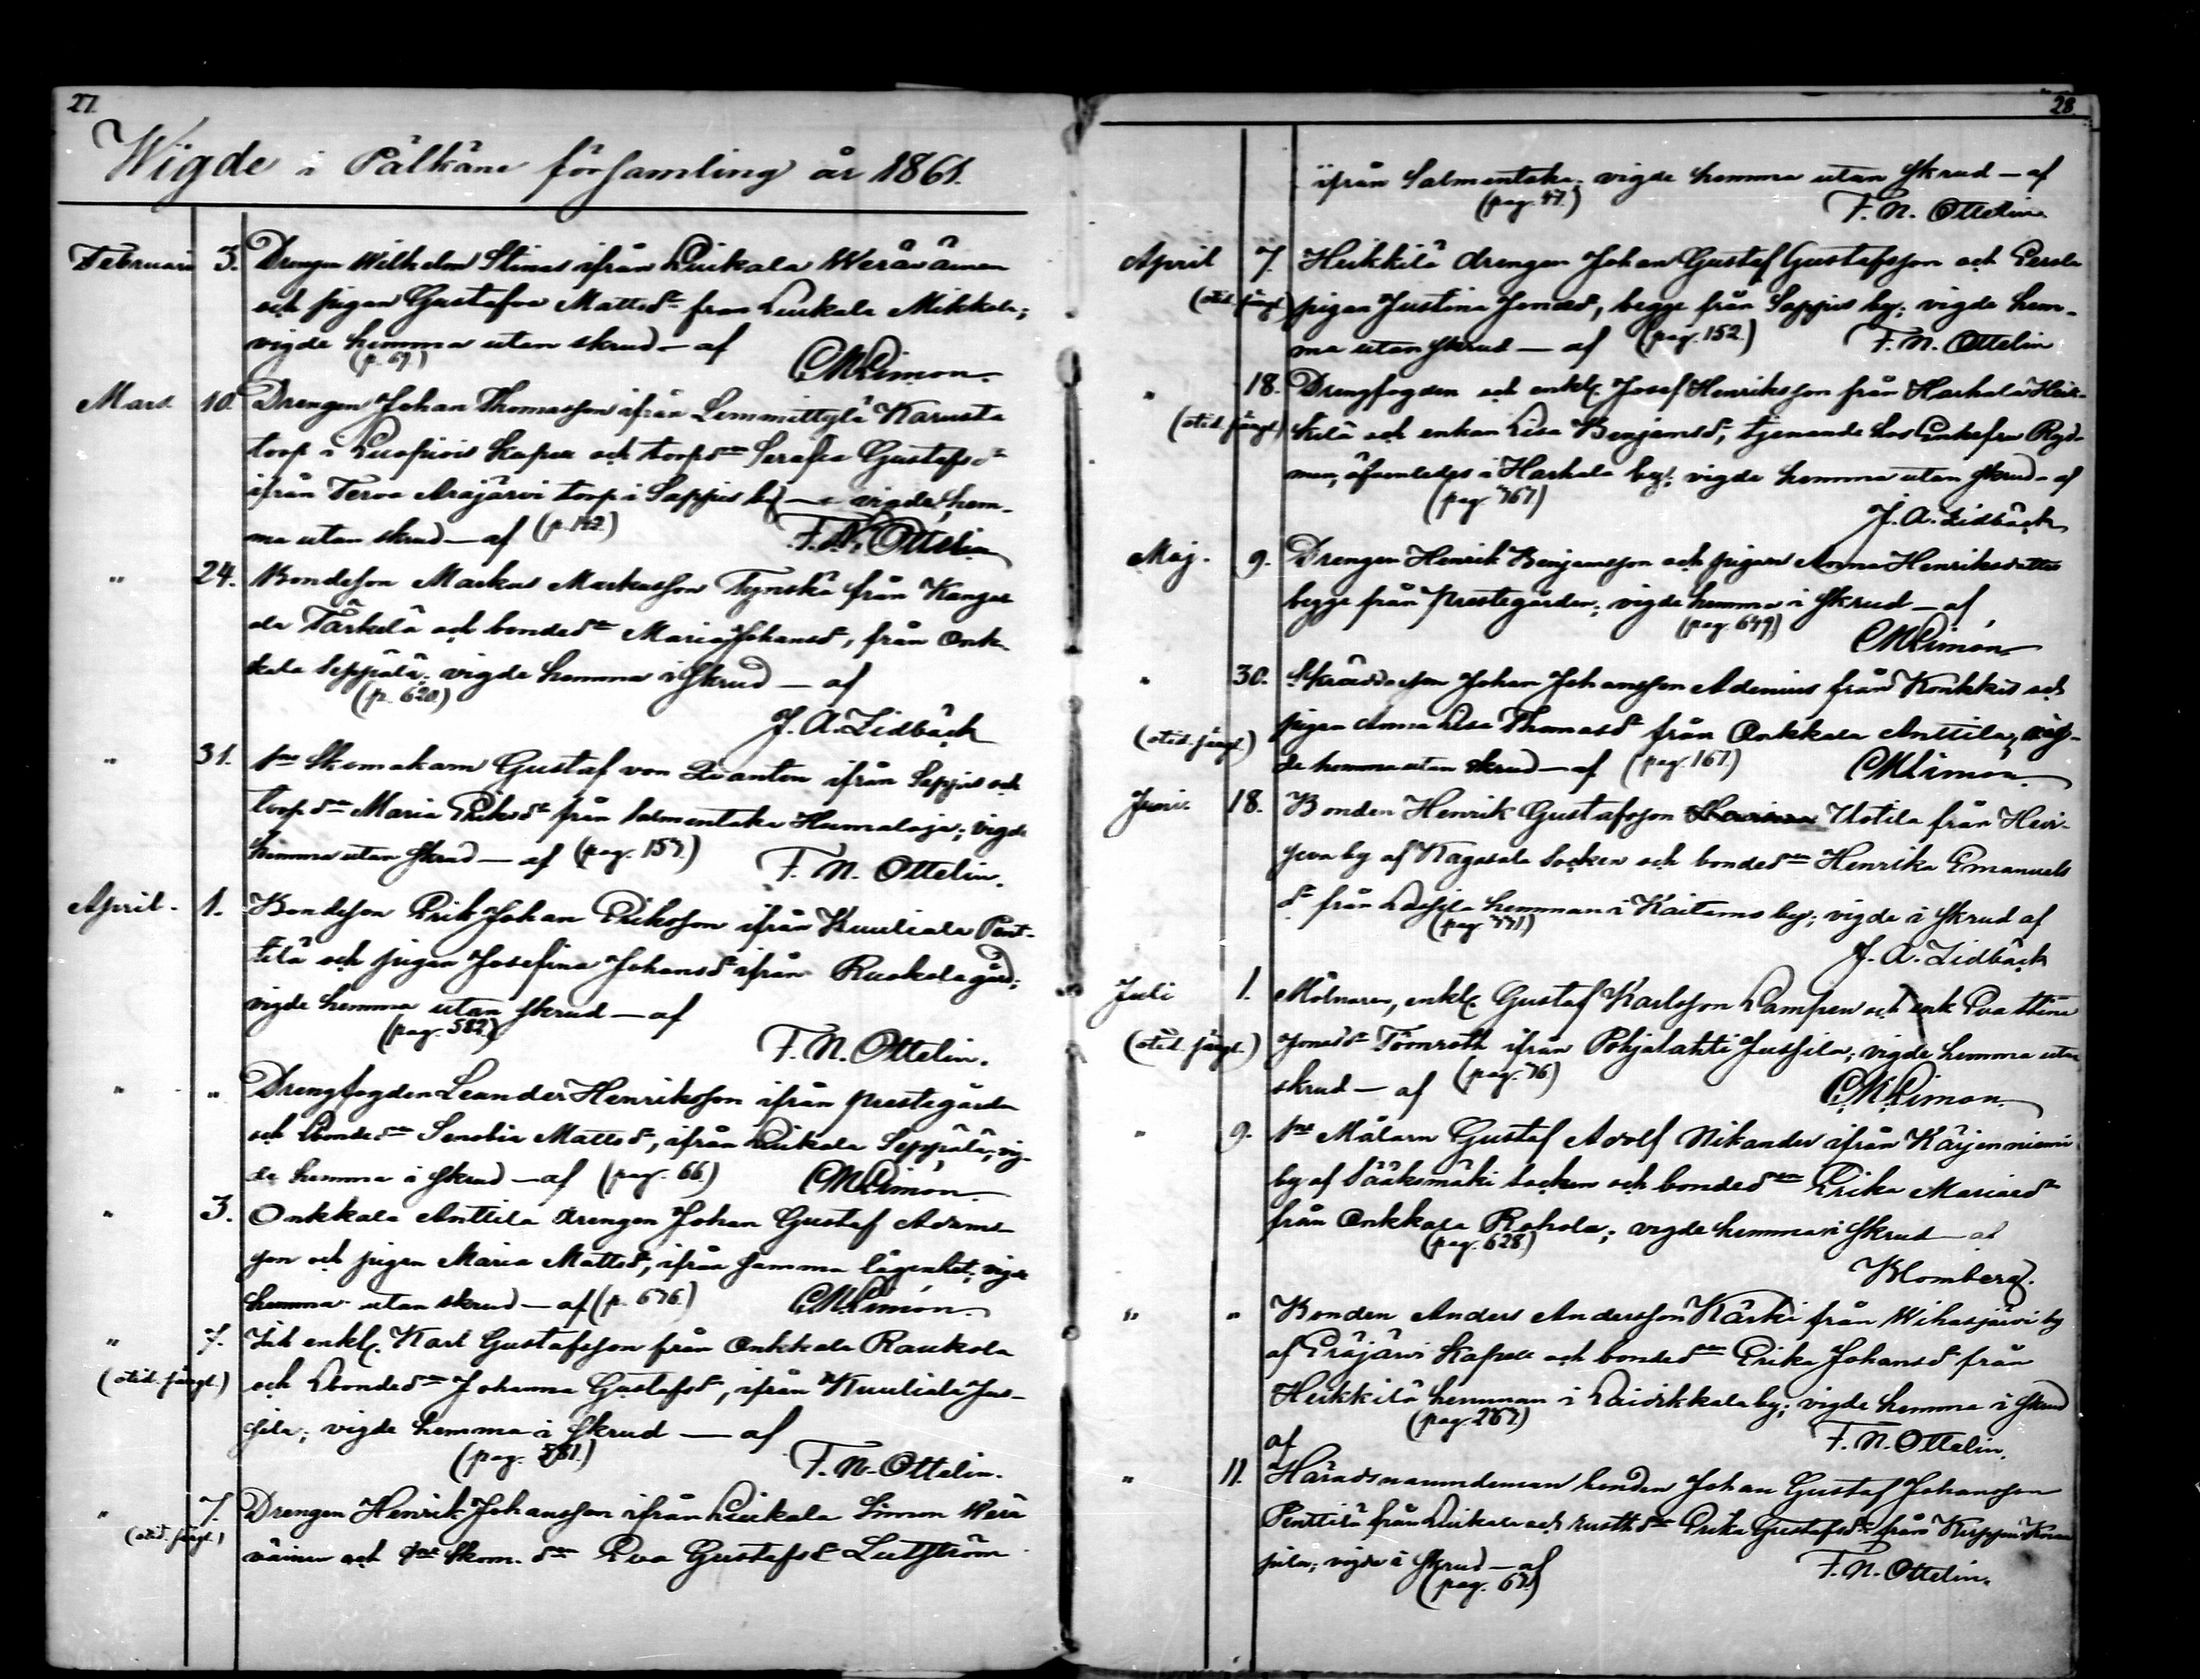 27.
Wigde i Pälkäne församling år 1861.
Februari 3. Drengen Wilhelm Stinas ifrån Luikala Weräväinen
och pigan Gustafva Mattsdr från Luikala Mikkola;
vigde hemma utan skrud — af
(p. 69.) CMLimon.
Mars 10. Drengen Johan Thomasson ifrån Lemmittylä Karusta
torp i Luopiois Kapell och torpdn Serafia Gustafsdr
ifrån Terva Arajärvi torp i Sappis by — vigde hem-
ma utan skrud — af (p. 142.) F. N. Ottelin
" 24. Bondeson Markus Markusson Tynskä från Kangas
ala Tärkelä och bondedn Maria Johansdr, från Onk-
kala Seppälä; vigde hemma i Skrud — af
(p. 620.)
J. A. Lidbäck
" 31. sne Skomakarn Gustaf von Qvanten ifrån Sappis och
torpdn Maria Eriksdr från Salmentaka Humaloja; vigde
hemma utan Skrud — af (pag. 157.) F. N. Ottelin.
April. 1. Bondeson Erik Johan Eriksson ifrån Kuuliala Pent-
tilä och pigan Josefina Johansdr ifrån Ruokola gård;
vigde hemma utan Skrud — af
(pag. 582.)
F. N. Ottelin.
" " Drengfogden Leander Henriksson ifrån prestegården
och bondedn Senobia Mattsdr, ifrån Luikala Seppälä; vig-
de hemma i Skrud — af (pag. 66.) CMLimon.
" 3. Onkkala Anttila drengen Johan Gustaf Adams-
son och pigan Maria Mattsdr, ifrån samma lägenhet; vigde
hemma utan skrud — af (p. 636.) CMLimon.
" 7. Itik enkl. Karl Gustafsson från Onkkala Raukola
(otid. fängl.) och bondedn Johanna Gustafsdr, ifrån Kuuliala Jus-
sila; vigde hemma i Skrud — af
(pag. 581.)
F. N. Ottelin.
" 7. Drengen Henrik Johansson ifrån Luikala Simon Werä
(otid. fängl.)
väinen och sne Skom. dn Eva Gustafsdr Lutström
28.
ifrån Salmentaka; vigde hemma utan Skrud — af
(pag. 47.) F. N. Ottelin.
April 7. Heikkilä drengen Johan Gustaf Gustafsson och Perola
(otid. fängl.) pigan Justina Jonasd, begge från Sappis by; vigde hem-
ma utan Skrud — af (pag. 152.) F. N. Ottelin
" 18. Drengfogden och enkl. Josef Henriksson från Harhala Heik-
(otid. fängl.) kilä och enkan Lisa Benjamsdr, tjenande hos Enkefru Ryd-
man, äfvenledes i Harhala by; vigde hemma utan Skrud — af
(pag. 367)
J. A. Lidbäck
Maj. 9. Drengen Henrik Benjamsson och pigan Anna Henriksdotter
begge från prestegården; vigde hemma i Skrud — af
(pag. 649)
CMLimon
" 30. Skräddaren Johan Johansson Adenius från Konkkis och
(otid. fängl.) pigan Anna Lisa Thomasdr från Onkkala Anttila, vig-
de hemma utan skrud — af (pag. 167.) CMLimon
Juni 18. Bonden Henrik Gustafsson Uotila från Havi-
seva by af Kagasala Socken och bondedn Henrika Emanuels
dr från Lassila hemman i Kaitamo by; vigde i Skrud af
(pag. 331)
J. A. Lidbäck
Juli 1. Mölnaren, enkl. Gustaf Karlsson Lampen och enk Eva Stina
(otid. fängl.) Jonasdr Törnroth ifrån Pohjalahti Jussila; vigde hemma utan
skrud — af (pag. 76) CMLimon.
" 9. sne Målarn Gustaf Adolf Nikander ifrån Kärjenniemi
by af Sääksmäki Socken och bondedn Erika Mariasdr
från Onkkala Rohola; vigde hemma i Skrud — af
(pag. 628.)
Blomberg.
" " Bonden Anders Andersson Kärki från Wihasjärvi by
af Eräjärvi Kapell och bondedn Erika Johansdr från
Heikkilä hemman i Laitikkala by; vigde hemma i Skrud
(pag. 267)
af F. N. Ottelin.
" 11. Häradsnämndeman bonden Johan Gustaf Johansson
Penttilä från Luikala och rusth. dn Erika Gustafsdr från Kirppu Knaa
pila; vigde i Skrud — af F. N. Ottelin.
(pag. 67.)